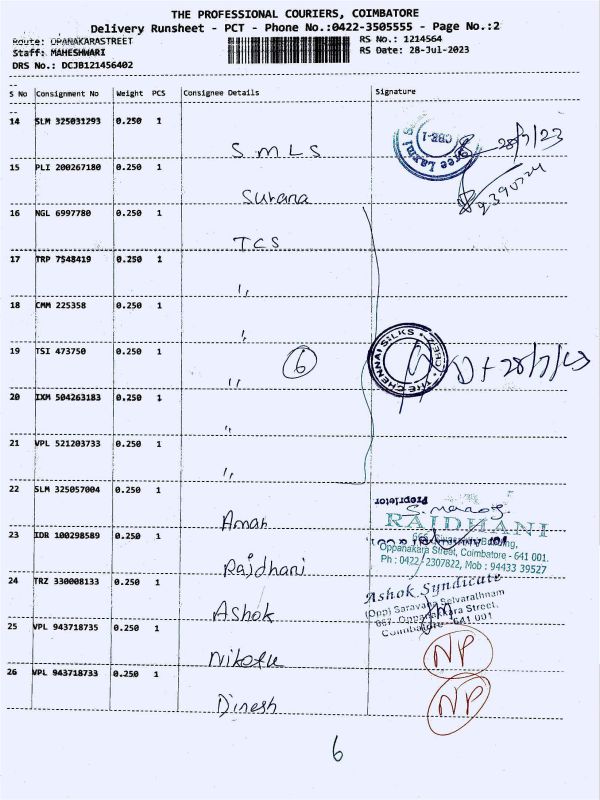 THE PROFESSIONAL COURIERS, COIMBATORE
Delivery Runsheet - PCT - Phone No.:0422-3505555 - Page No.:2
Route: OPANAKARASTREET
RS No.: 1214564
Staff: MAHESHWARI
RS Date: 28-Jul-2023
DRS No.: DCJB121456402
S No Consignment No Weight PCS Consignee Details Signature
14 SLM 325031293 0.250 1
S M L S
Sree Laxmi S
CBE-1
28/7/23
15 PLI 200267180 0.250 1
Surana
16 NGL 6997780 0.250 1
TCS
17 TRP 7548419 0.250 1
"
18 CMM 225358 0.250 1
"
19 TSI 473750 0.250 1
"
6
THE CHENNAI SILKS
28/7/23
20 IXM 504263183 0.250 1
"
21 VPL 521203733 0.250 1
"
22 SLM 325057004 0.250 1
Aman
Proprietor
23 IDR 100298589 0.250 1
Rajdhani
RAJDHANI
Oppanakara Street, Coimbatore - 641 001.
Ph : 0422-2307822, Mob : 94433 39527
24 TRZ 330008133 0.250 1
Ashok
Ashok Syndicate
(Opp) Saravana Selvarathnam
667, Oppanakkara Street,
Coimbatore - 641 001
25 VPL 943718735 0.250 1
NP
26 VPL 943718733 0.250 1
Dinesh
NP
6